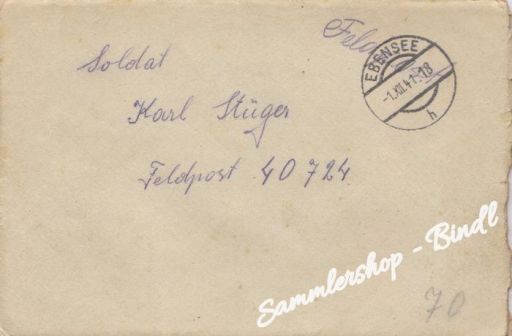 Feld
EBENSEE
-1.XII.41-18
h
Soldat
Karl Stüger
Feldpost 40724.
Sammlershop - Bindl
70